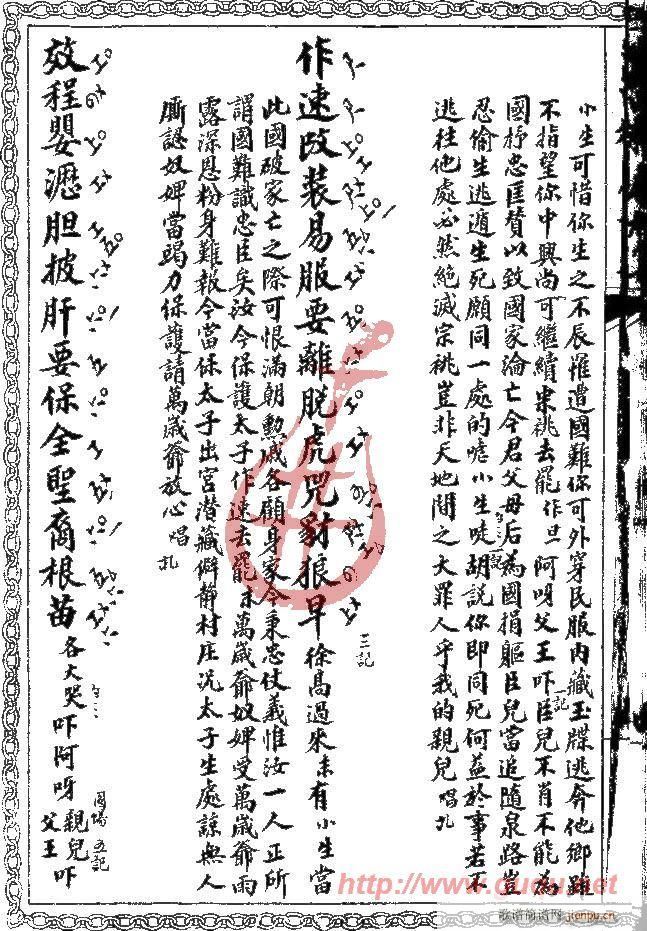 小生可惜你生之不辰罹遭國難你可外穿民服內藏玉牒逃奔他鄉雖
不指望你中興尚可繼續宗祧去罷作旦阿呀父王吓臣兒不肖不能為
一記
國抒忠匡贊以致國家淪亡今君父母后為國捐軀臣兒當追隨泉路豈
忍偷生逃遁生死願同一處的嚎小生唗胡說你即同死何益於事若不
逃往他處必然絕滅宗祧豈非天地間之大罪人乎我的親兒唱扎
作速改裝易服要離脫虎兕豺狼早徐高過來末有小生當
三記
此國破家亡之際可恨滿朝勳戚各顧身家今秉忠仗義惟汝一人正所
謂國難識忠臣矣汝今保護太子作速去罷末萬歲爺奴婢受萬歲爺雨
露深恩粉身難報今當保太子出宮潛藏僻靜村庄況太子生處諒無人
廝認奴婢當竭力保護請萬歲爺放心唱扎
效程嬰瀝胆披肝要保全聖裔根苗各大哭吓阿呀親兒吓
父王
圓場五記
http://www.guqu.net
歌谱简谱网 jianpu.cn